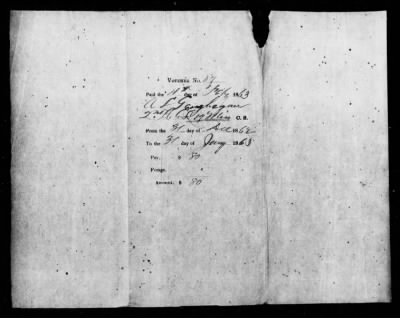 Voucher No. 89
Paid the 11th day of Feby 1863
A. L. Geoghegan
C. S.
From the 31 day of Dec 1862
To the 31 day of Jany 1863
Pay, $ 80
Forage,
Amount, $ 80